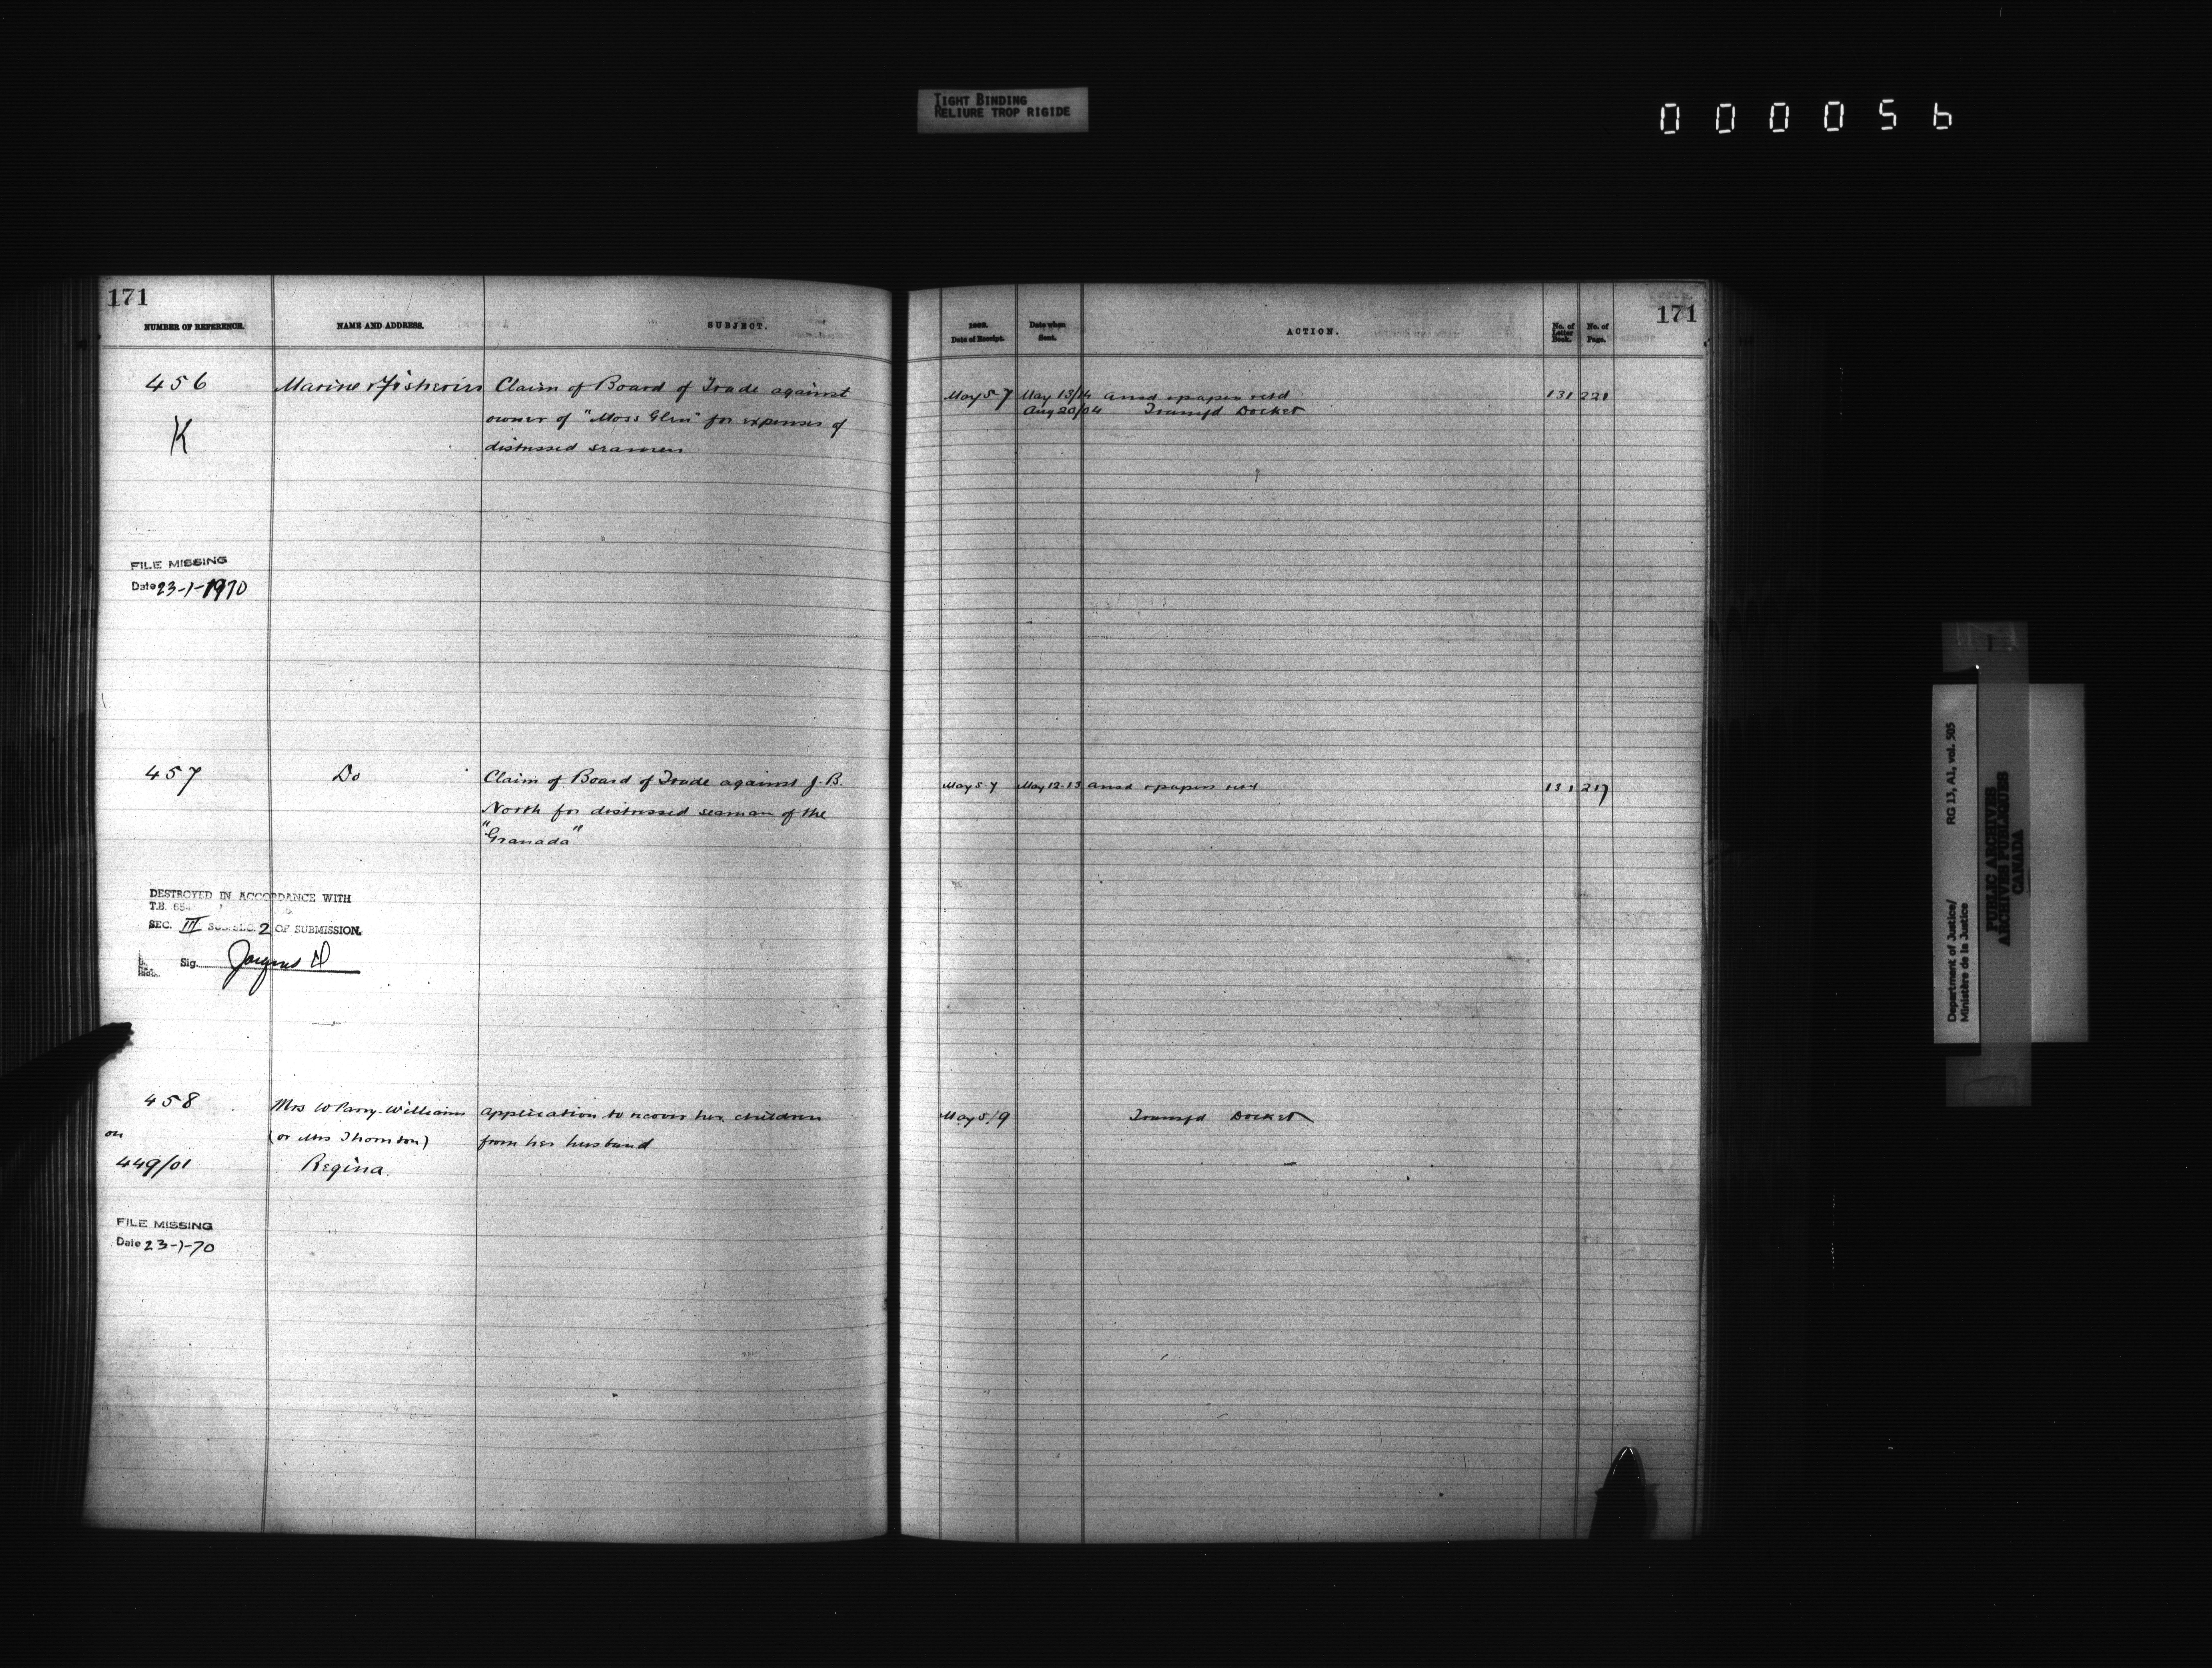 TIGHT BINDING
RELIURE TROP RIGIDE
000056
171
NUMBER OF REFERENCE.
NAME AND ADDRESS.
SUBJECT.
456
K
Marine & Fisheries
Claim of Board of Trade against
owner of "Moss Glen" for expenses of
distressed seamen
FILE MISSING
Date 23-1-1970
457
Do
Claim of Board of Trade against J. B.
North for distressed seaman of the
"Granada"
DESTROYED IN ACCORDANCE WITH
T.B.
SEC. III SUB.SEC. 2 OF SUBMISSION.
Sig.
458
on
449/01
Mrs W Parry-Williams
(or Mrs Thornton)
Regina.
Application to recover her children
from her husband
FILE MISSING
Date 23-1-70
171
1902.
Date of Receipt.
Date when
Sent.
ACTION.
No. of
Letter
Book.
No. of
Page.
May 5-7 May 13/14 ansd & papers retd 131 221
Aug 20/04 Transfd Docket
May 5-7 May 12-13 ansd & papers retd 131 217
May 5/9 Transfd Docket
Department of Justice/ RG 13, A1, vol. 505
Ministère de la Justice
PUBLIC ARCHIVES
ARCHIVES PUBLIQUES
CANADA